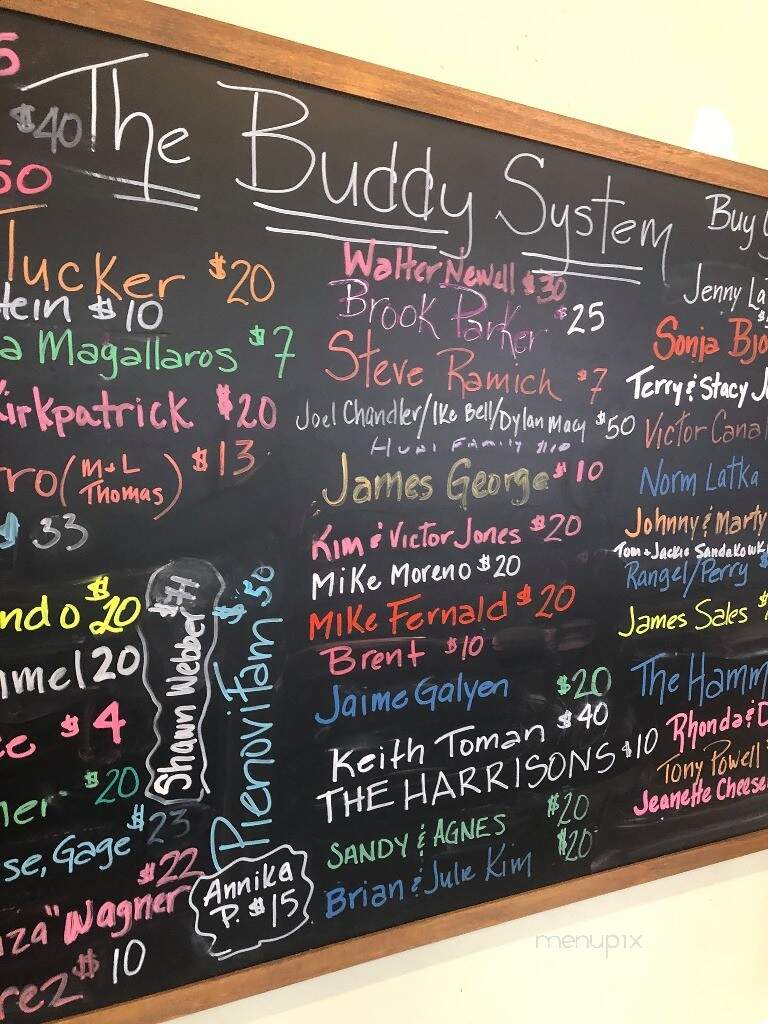 5
$40
50
The Buddy System
Tucker $20
tein $10
a Magallaros $7
Kirkpatrick $20
ro (M+L Thomas) $13
$ 33
ndo $20
mmel 20
ce $4
ner $20
se, Gage $23
$22
nza" Wagner
rez $10
Shawn Webber $71
PienoviFam $50
Annika
P. $15
Walter Newell $30
Brook Parker $25
Steve Ramich $7
Joel Chandler/Ike Bell/Dylan Macy $50
Family $10
James George $10
Kim & Victor Jones $20
Mike Moreno $20
Mike Fernald $20
Brent $10
Jaime Galyen $20
Keith Toman $40
THE HARRISONS $10
SANDY & AGNES $20
Brian & Julie Kim $20
Buy
Jenny La
Sonja Bjo
Terry & Stacy J
Victor Cana
Norm Latka
Johnny & Marty
Tom + Jackie Sandakowk
Rangel/Perry $
James Sales $
The Hamm
Rhonda & D
Tony Powell
Jeanette Cheese
menupix